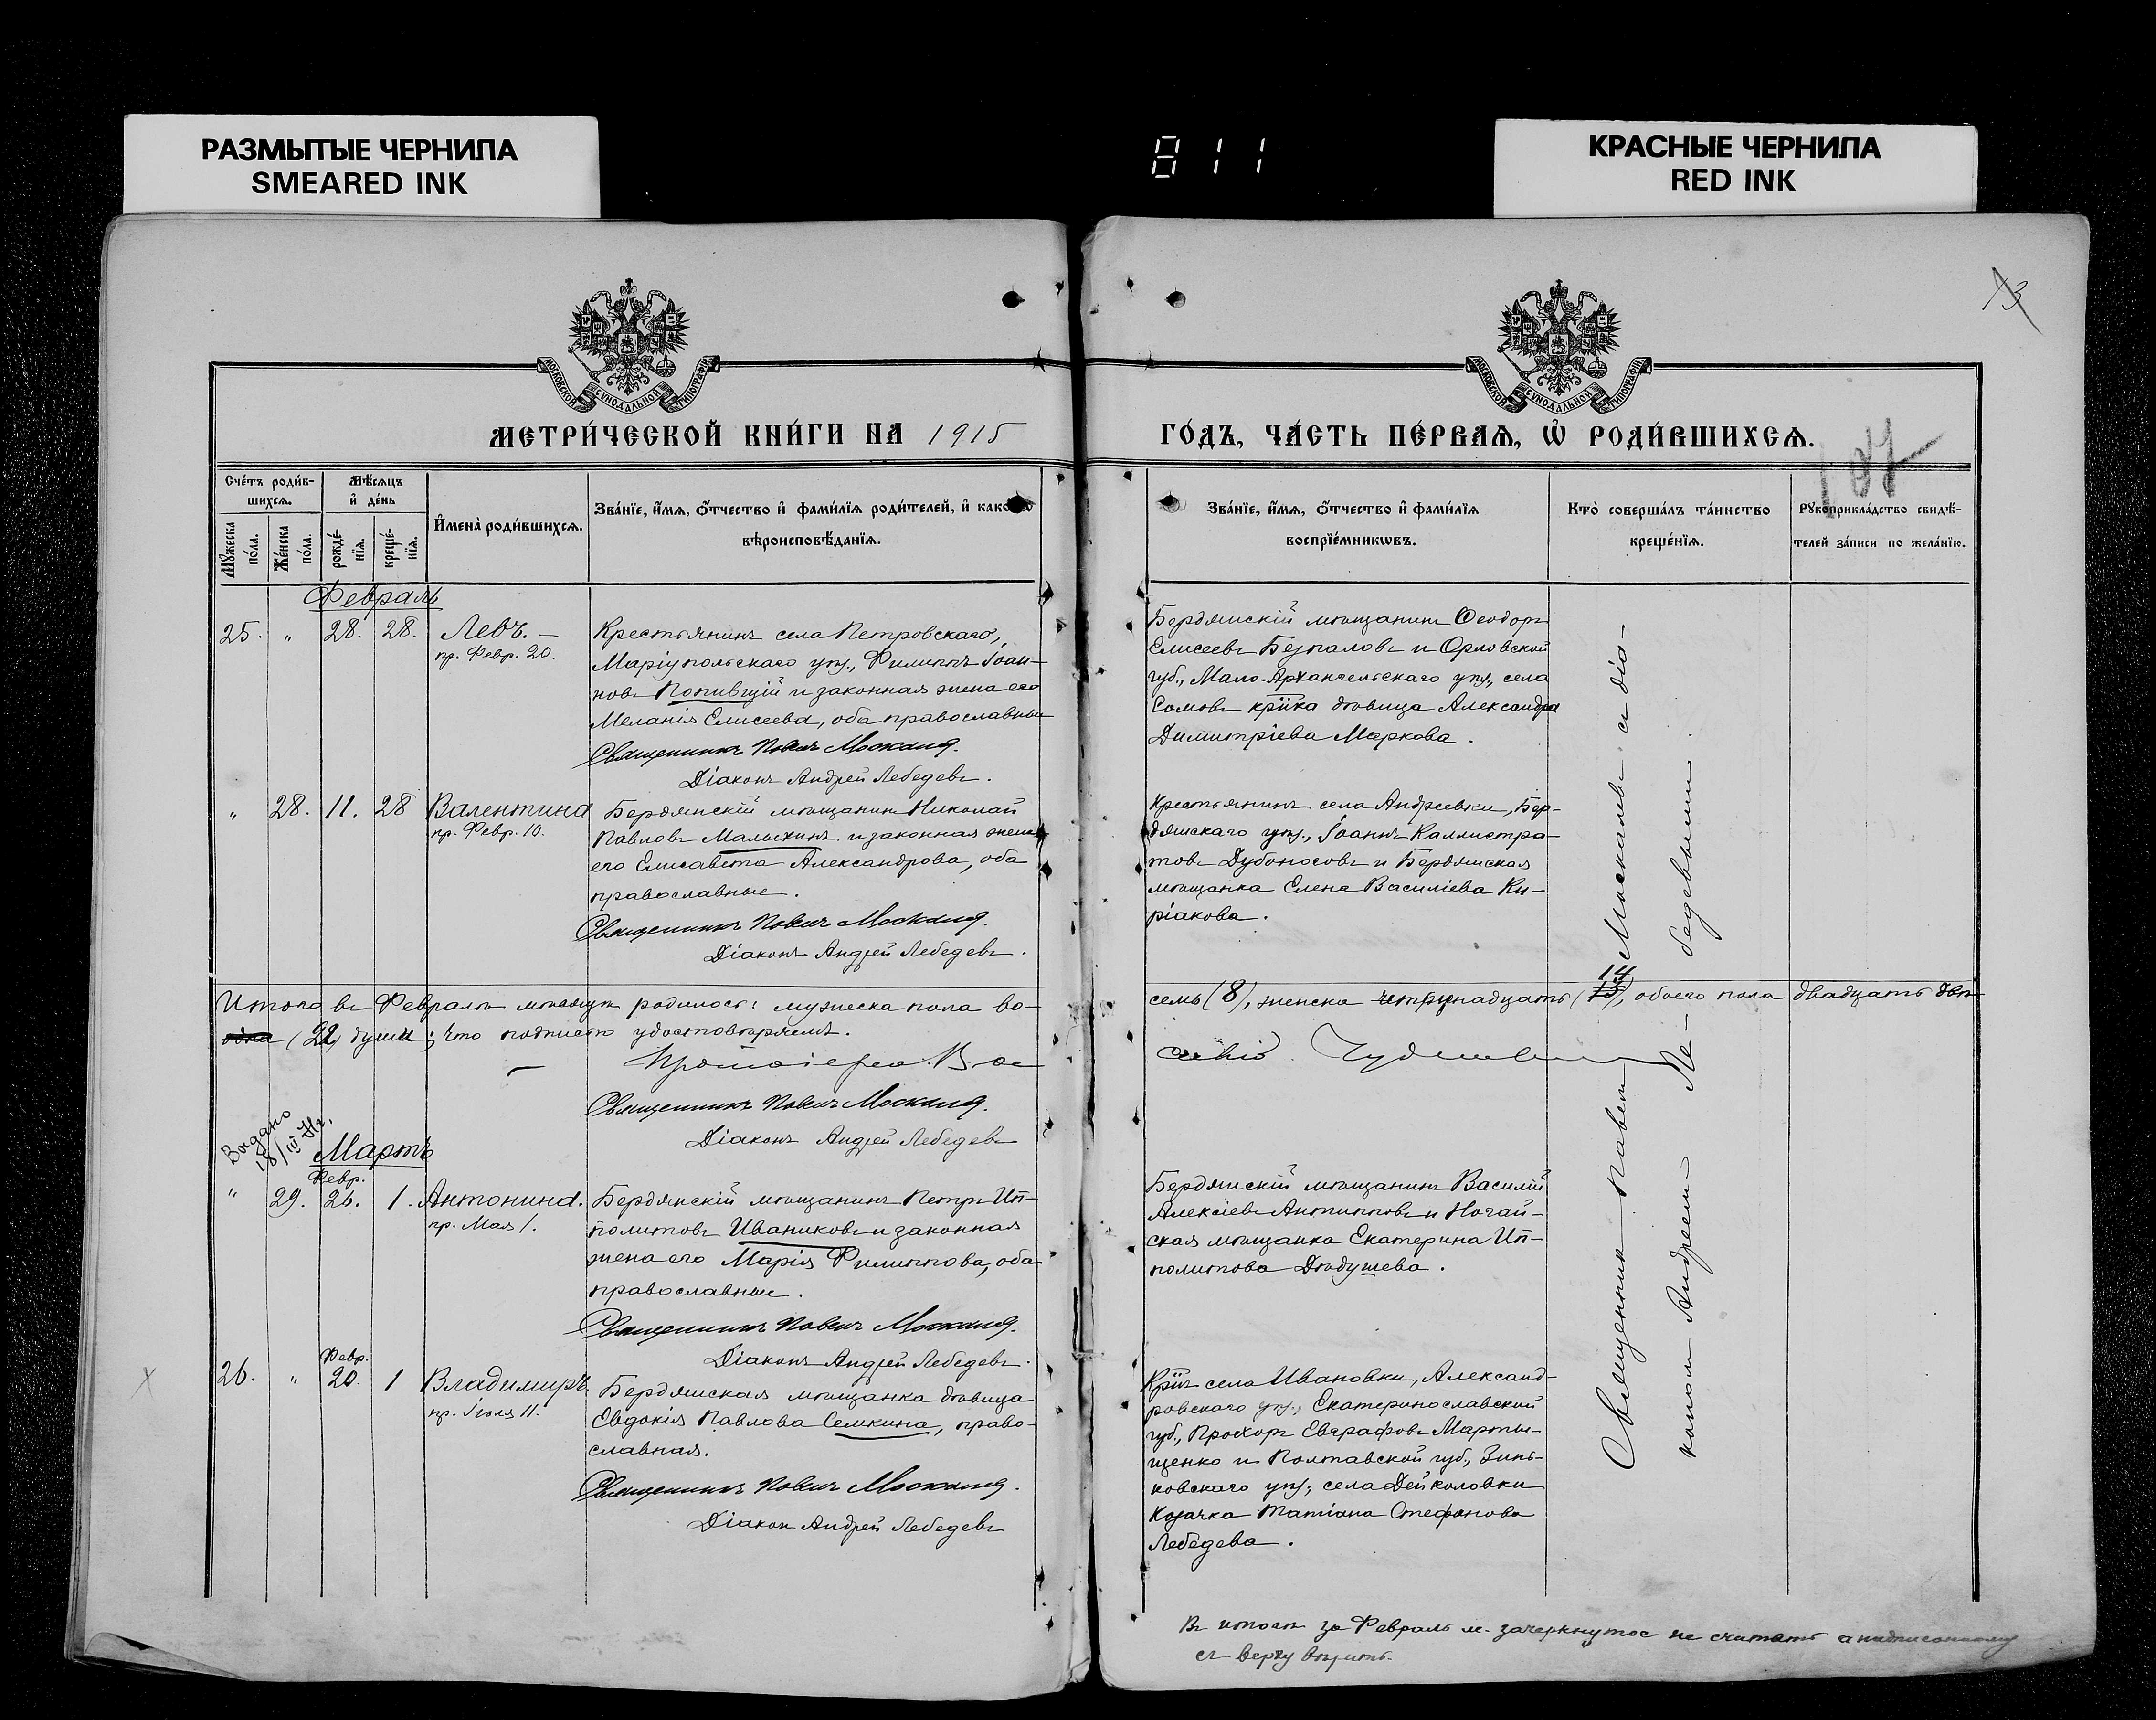 РАЗМЫТЫЕ ЧЕРНИЛА
SMEARED INK
811
КРАСНЫЕ ЧЕРНИЛА
RED INK
13
МОСКОВСКОЙ СУНОДАЛЬНОЙ ТИПОГРАФІИ
МОСКОВСКОЙ СУНОДАЛЬНОЙ ТИПОГРАФІИ
МЕТРИ́ЧЕСКОЙ КНИ́ГИ НА 1915
ГО́ДЪ, ЧА́СТЬ ПЕ́РВАЯ, Ѡ҆ РОДИ́ВШИХСЯ.
Сче́тъ роди́в-
шихся.
Мѣ́сяцъ
и҆ де́нь
Мꙋ́жеска
по́ла.
Же́нска
по́ла.
рожде́-
нїя.
креще́-
нїя.
И҆мена̀ роди́вшихся.
Зва́нїе, и҆́мя, ѻ҆́тчество и҆ фами́лїя роди́телей, и҆ како́гѡ
вѣроисповѣ́данїя.
Зва́нїе, и҆́мя, ѻ҆́тчество и҆ фами́лїя
воспрїе́мникѡвъ.
Кто̀ соверша́лъ та́инство
креще́нїя.
Рꙋкоприкла́дство свидѣ́-
телей за́писи по жела́нїю.
Февраль
25. " 28. 28. Левъ. —
пр. Февр. 20.
Крестьянинъ села Петровскаго,
Маріупольскаго уѣз., Филиппъ Іоан-
новъ Попившій и законная жена его
Меланія Елисеева, оба православные
Священникъ Павелъ Москалевъ.
Діаконъ Андрей Лебедевъ.
Бердянскій мѣщанинъ Ѳеодоръ
Елисеевъ Безпаловъ и Орловской
губ., Мало-Архангельскаго уѣз., села
Сомово кр҃нка дѣвица Александра
Димитріева Маркова.
" 28. 11. 28 Валентина
пр. Февр. 10.
Бердянскій мѣщанинъ Николай
Павловъ Малыхинъ и законная жена
его Елисавета Александрова, оба
православные.
Священникъ Павелъ Москалевъ.
Діаконъ Андрей Лебедевъ.
Крестьянинъ села Андреевки, Бер-
дянскаго уѣз., Іоаннъ Каллистра-
товъ Дубоносовъ и Бердянская
мѣщанка Елена Василіева Ки-
ріакова.
Итого въ Февралѣ мѣсяцѣ родилось: мужеска пола во-
семь (8), женска четырнадцать (14), обоего пола двадцать двѣ
одна (22) души; что подписью удостовѣряемъ.
Протоіерей
Священникъ Павелъ Москалевъ.
Діаконъ Андрей Лебедевъ
Выдано
18/III
Мартъ
Февр.
" 29. 26. 1. Антонина.
пр. Мая 1.
Бердянскій мѣщанинъ Петръ Ип-
политовъ Иваниковъ и законная
жена его Марія Филиппова, оба
православные.
Священникъ Павелъ Москалевъ.
Діаконъ Андрей Лебедевъ.
Бердянскій мѣщанинъ Василій
Алексіевъ Антиповъ и Ногай-
ская мѣщанка Екатерина Ип-
политова Дѣдушева.
Февр.
26. " 20. 1 Владимиръ
пр. Іюля 11.
Бердянская мѣщанка дѣвица
Евдокія Павлова Семкина, право-
славная.
Священникъ Павелъ Москалевъ.
Діаконъ Андрей Лебедевъ
Кр҃нъ села Ивановки, Александ-
ровскаго уѣз., Екатеринославской
губ., Прохоръ Евграфовъ Марты-
щенко и Полтавской губ., Зинь-
ковскаго уѣз., села Дейкаловки
козачка Татіана Стефанова
Лебедева.
Священникъ Павелъ Москалевъ съ діа-
кономъ Андреемъ Ле-бедевымъ.
Въ итогѣ за Февраль м. зачеркнутое не считать а надписанному
съ верху вѣрить.